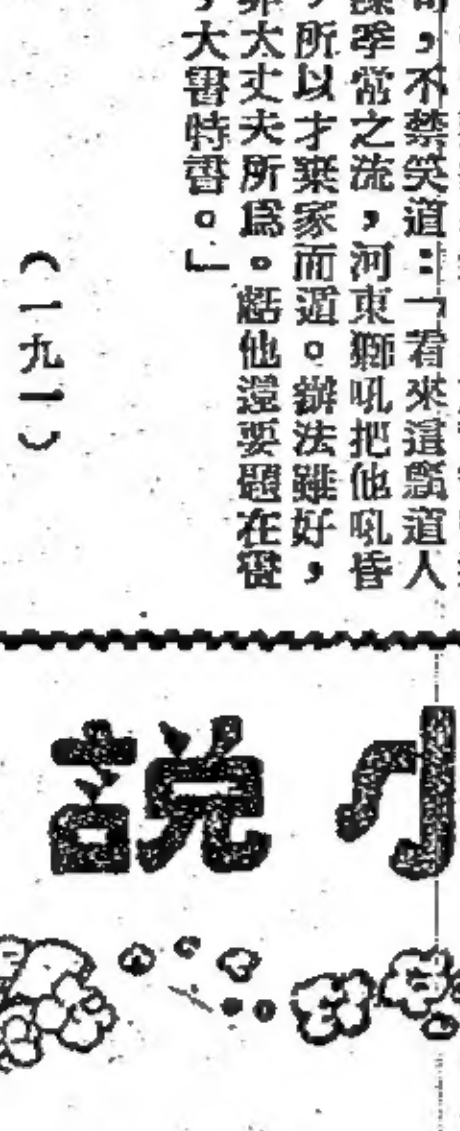 ，不禁笑道：「看來這醫道人
季常之流，河東獅吼把他吼昏
，所以才棄家而遁。辦法雖好，
非大丈夫所爲。虧他還要題在
，大書特書。」
（一九一）
小説